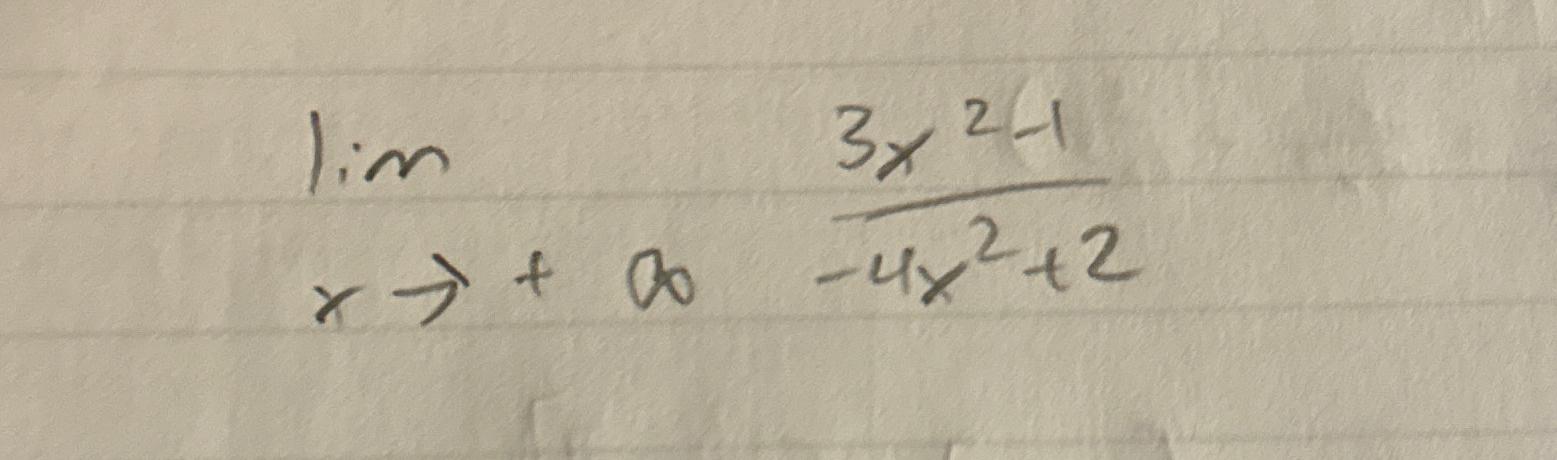 lim 3x²-1
x → + ∞ -4x²+2